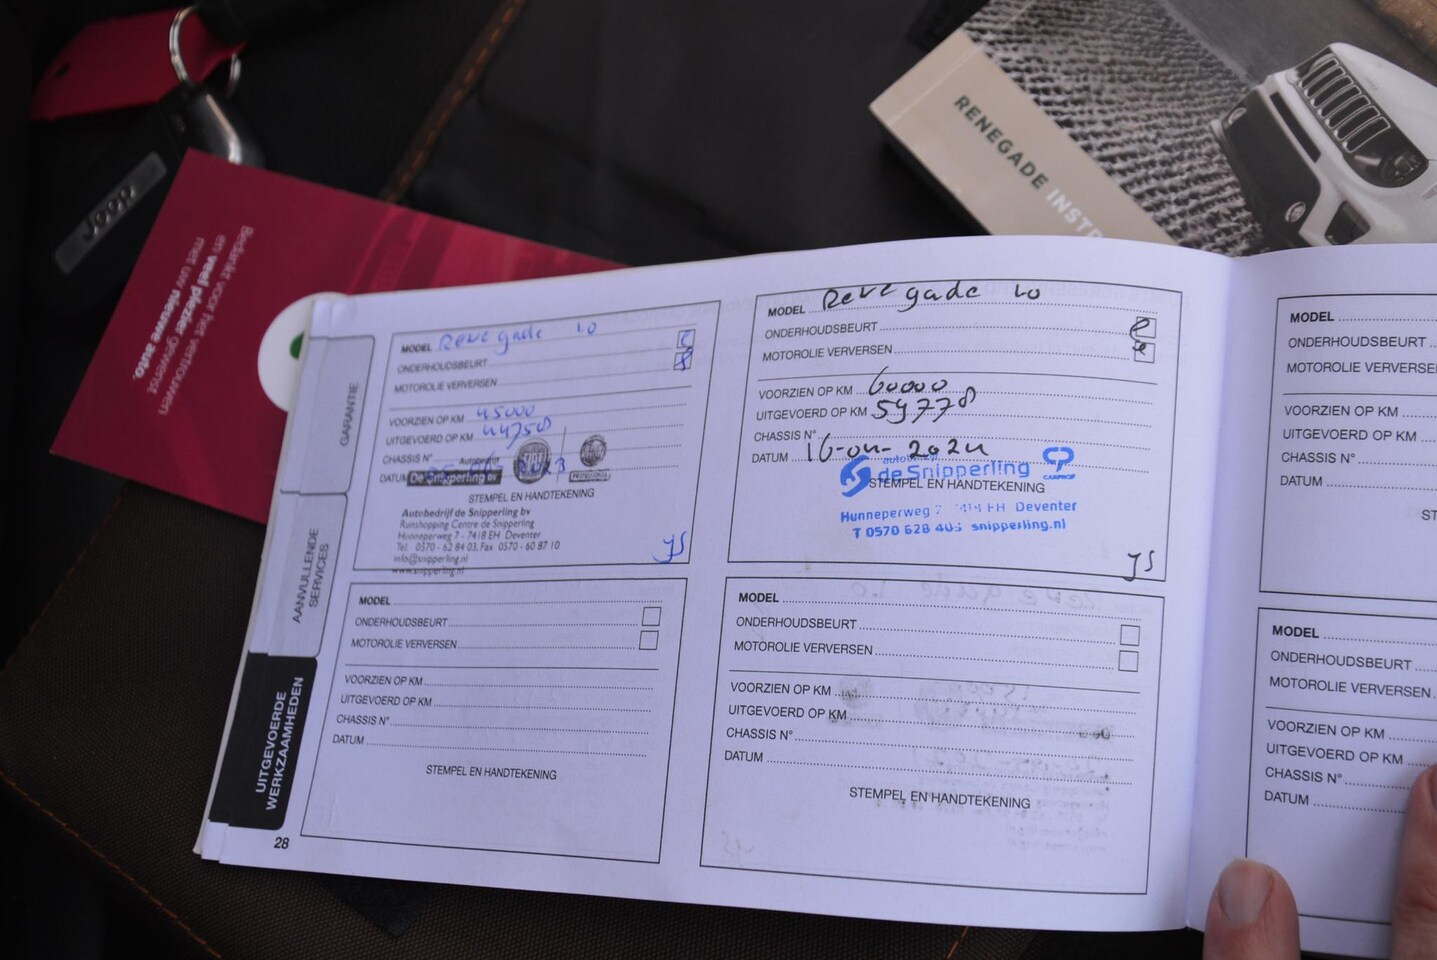 Jeep
Bedankt voor het vertrouwen
en veel plezier gewenst
met uw nieuwe auto.
RENEGADE INSTR
GARANTIE
AANVULLENDE
SERVICES
UITGEVOERDE
WERKZAAMHEDEN
MODEL Renegade 1.0
ONDERHOUDSBEURT
MOTOROLIE VERVERSEN
VOORZIEN OP KM 45000
UITGEVOERD OP KM 44758
CHASSIS N°
DATUM 2023
Autobedrijf
De Snipperling bv
FIAT
PROFESSIONAL
STEMPEL EN HANDTEKENING
Autobedrijf de Snipperling bv
Runshopping Centre de Snipperling
Hunneperweg 7 - 7418 EH Deventer
Tel. 0570 - 62 84 03, Fax 0570 - 60 87 10
info@snipperling.nl
www.snipperling.nl
MODEL Renegade 1.0
ONDERHOUDSBEURT
MOTOROLIE VERVERSEN
VOORZIEN OP KM 60000
UITGEVOERD OP KM 59778
CHASSIS N°
DATUM 16-04-2024
autobedrijf
de Snipperling
CARPROF
STEMPEL EN HANDTEKENING
Hunneperweg 7 EH Deventer
T 0570 628 403 snipperling.nl
MODEL
ONDERHOUDSBEURT
MOTOROLIE VERVERSEN
VOORZIEN OP KM
UITGEVOERD OP KM
CHASSIS N°
DATUM
STEMPEL EN HANDTEKENING
MODEL
ONDERHOUDSBEURT
MOTOROLIE VERVERSEN
VOORZIEN OP KM
UITGEVOERD OP KM
CHASSIS N°
DATUM
STEMPEL EN HANDTEKENING
28
MODEL
ONDERHOUDSBEURT
MOTOROLIE VERVERSE
VOORZIEN OP KM
UITGEVOERD OP KM
CHASSIS N°
DATUM
ST
MODEL
ONDERHOUDSBEURT
MOTOROLIE VERVERSEN
VOORZIEN OP KM
UITGEVOERD OP KM
CHASSIS N°
DATUM